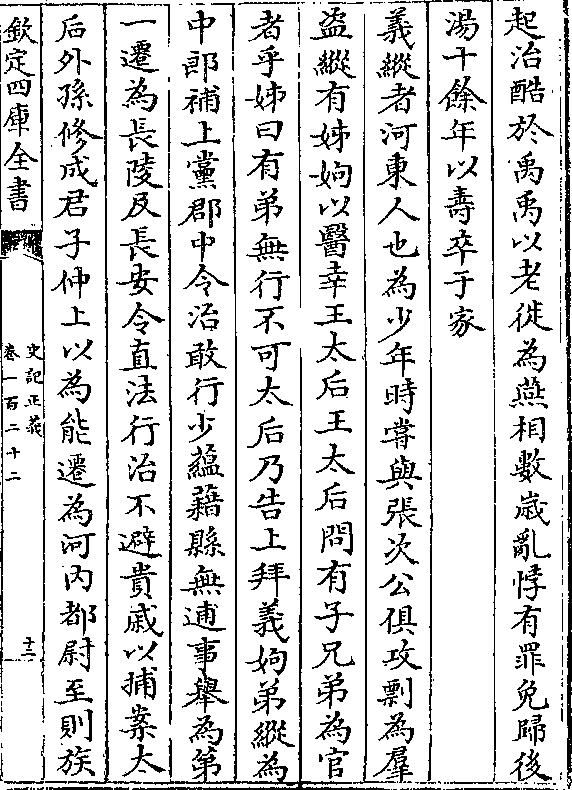 起治酷於禹禹以老徙為燕相數歲亂悖有罪免歸後
湯十餘年以壽卒于家
義縱者河東人也為少年時嘗與張次公俱攻剽為羣
盜縱有姊姁以醫幸王太后王太后問有子兄弟為官
者乎姊曰有弟無行不可太后乃告上拜義姁弟縱為
中郎補上黨郡中令治敢行少蘊藉縣無逋事舉為第
一遷為長陵及長安令直法行治不避貴戚以捕案太
后外孫修成君子仲上以為能遷為河內都尉至則族
欽定四庫全書
史記正義
卷一百二十二
十三